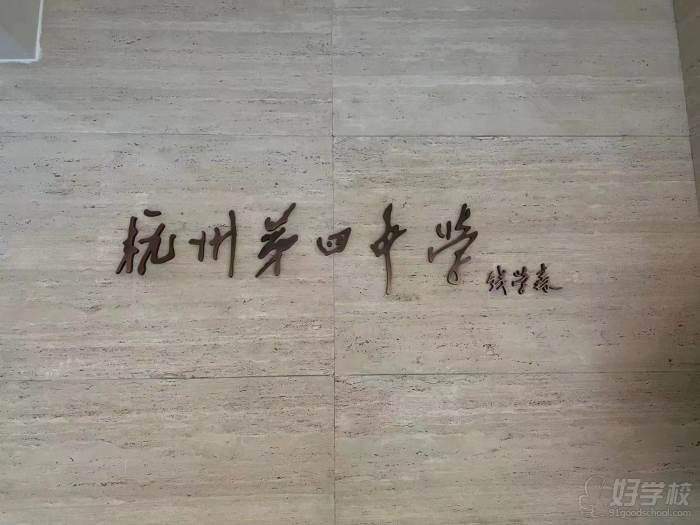 杭州第四中学
钱学森
好学校
91goodschool.com